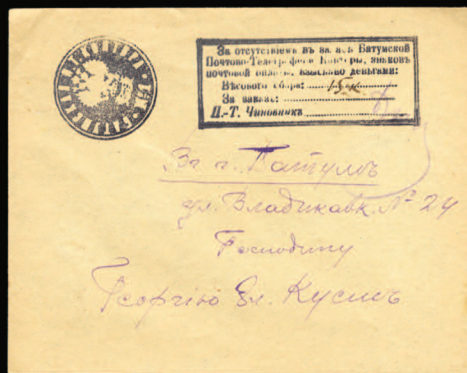 За отсутствіемъ въ Батумской
Почтово-Телеграфной Конторѣ, знаковъ
почтовой оплаты, взыскано деньгами:
Вѣсового сбора: 15 к.
За заказъ:
П.-Т. Чиновникъ
Въ г. Батумъ
ул. Владикавк. № 24
Господину
Георгію Вл.